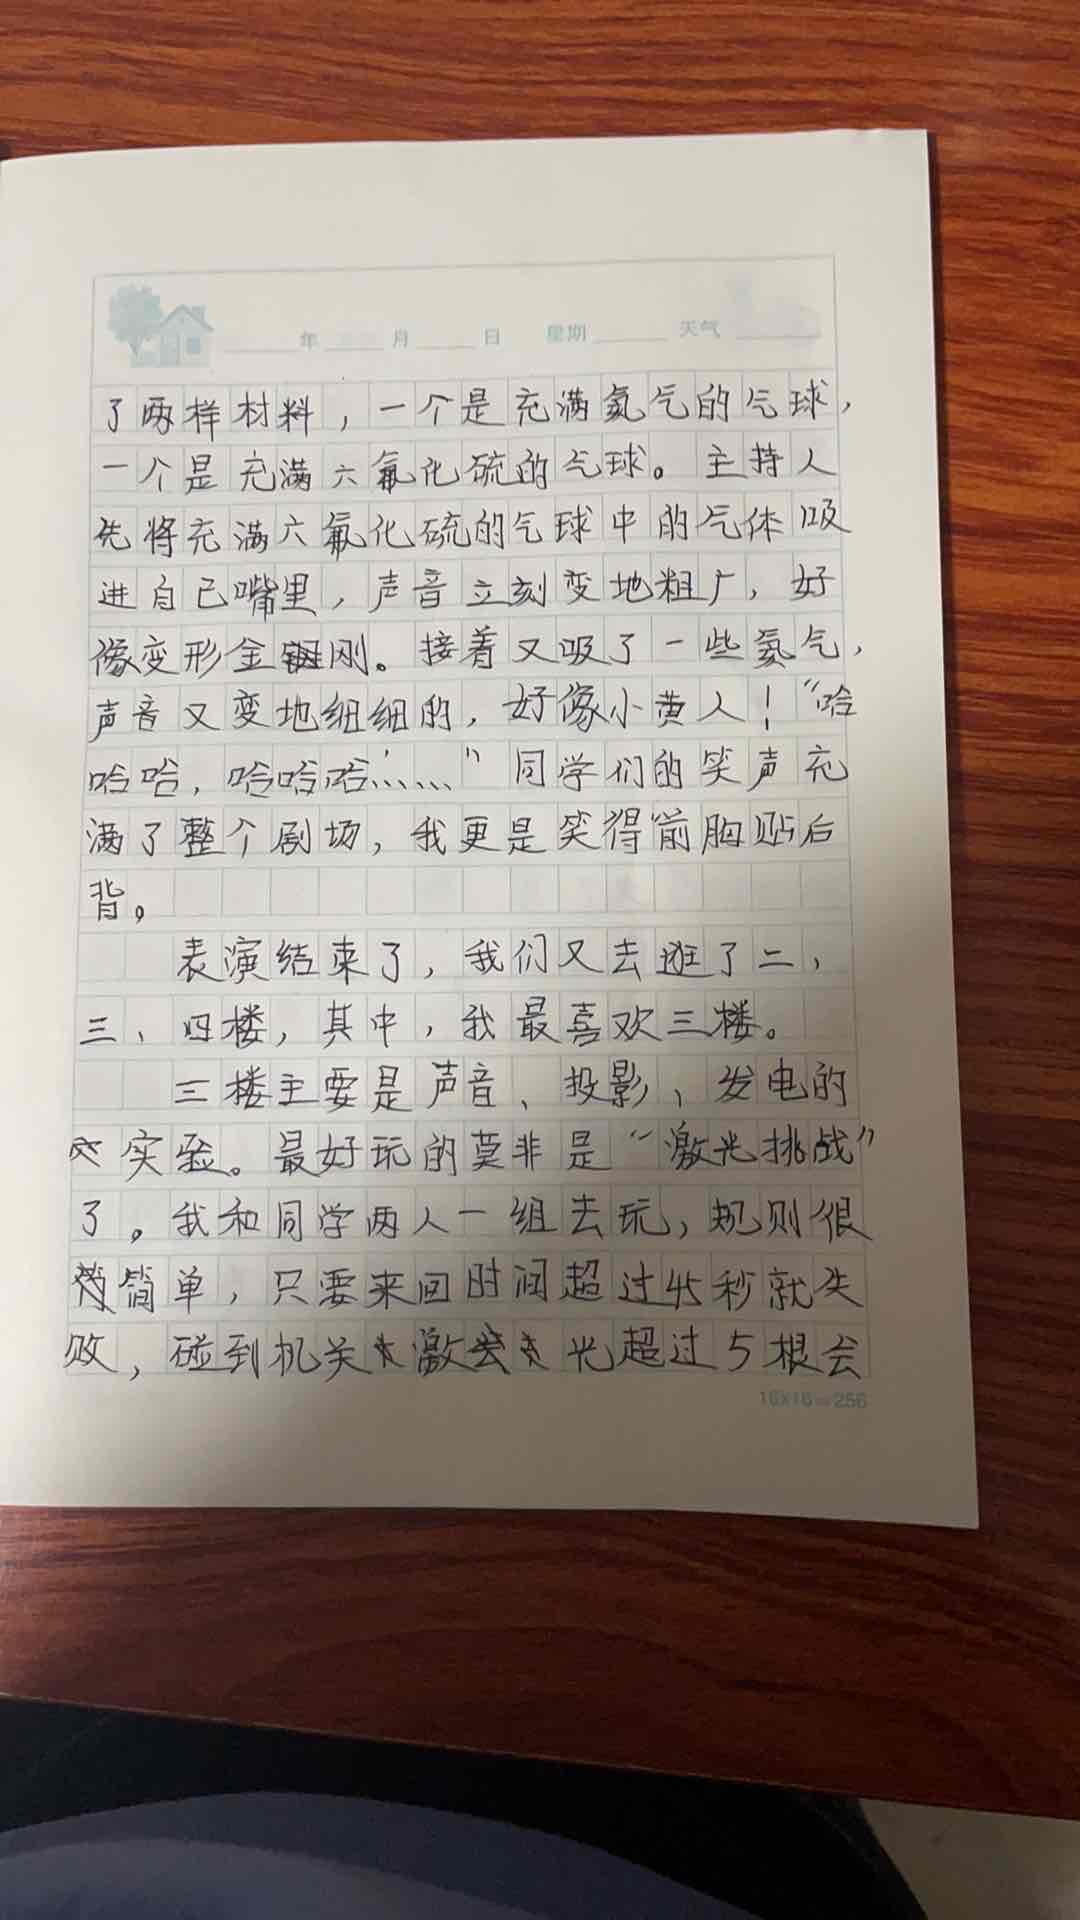 年 月 日 星期 天气
了两样材料，一个是充满氦气的气球，
一个是充满六氟化硫的气球。主持人
先将充满六氟化硫的气球中的气体吸
进自己嘴里，声音立刻变地粗广，好
像变形金刚。接着又吸了一些氦气，
声音又变地细细的，好像小黄人！“哈
哈哈，哈哈哈……”同学们的笑声充
满了整个剧场，我更是笑得前胸贴后
背。
表演结束了，我们又去逛了二、
三、四楼，其中，我最喜欢三楼。
三楼主要是声音、投影、发电的
实验。最好玩的莫非是“激光挑战”
了。我和同学两人一组去玩，规则很
简单，只要来回时间超过45秒就失
败，碰到机关激光超过5根会
16×16=256